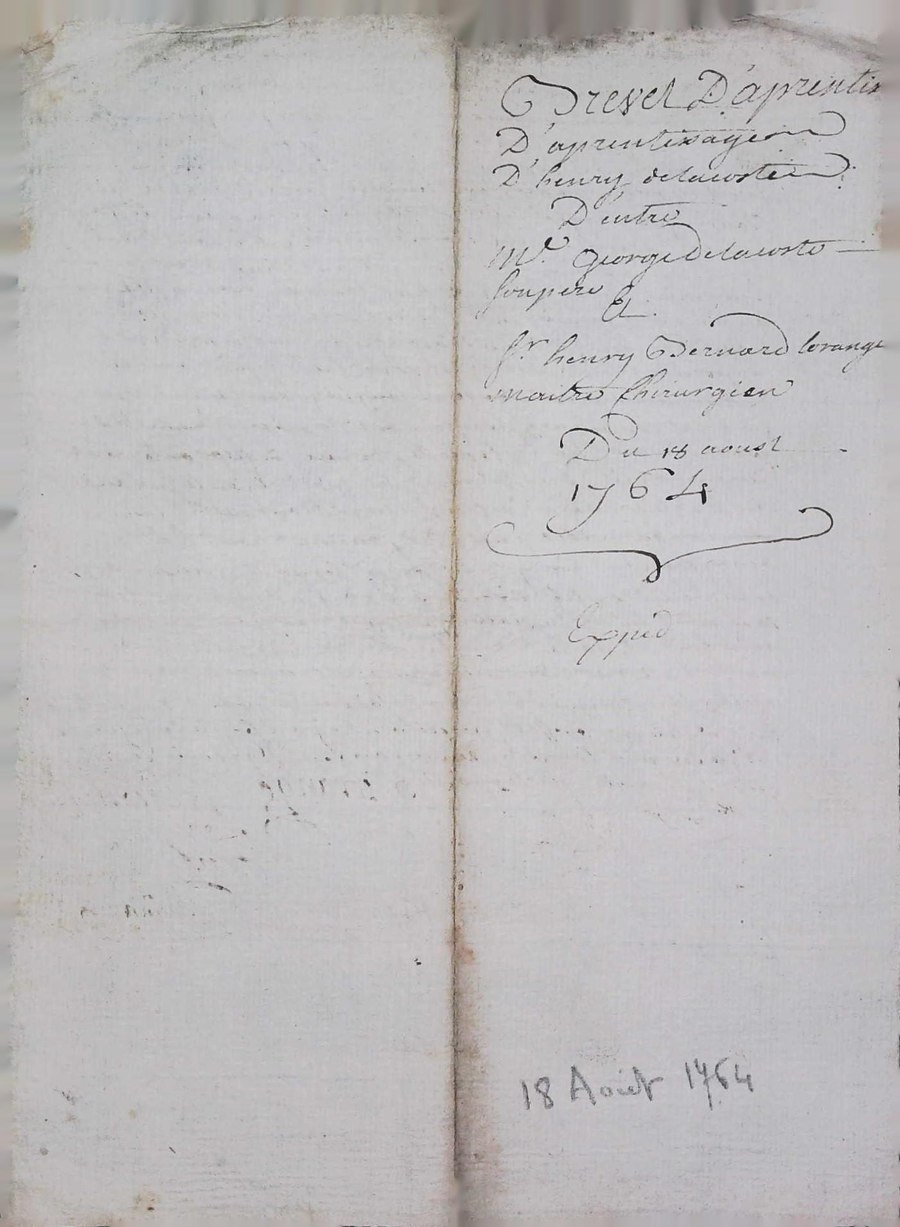 Brevet D'aprentis
D'aprentissage
D'henry delacoste
D'entre
Mr. George Delacoste
son pere
Et
Sr henry Bernard lorange
maitre Chirurgien
Du 18 aoust
1764
Expéd
18 Août 1764